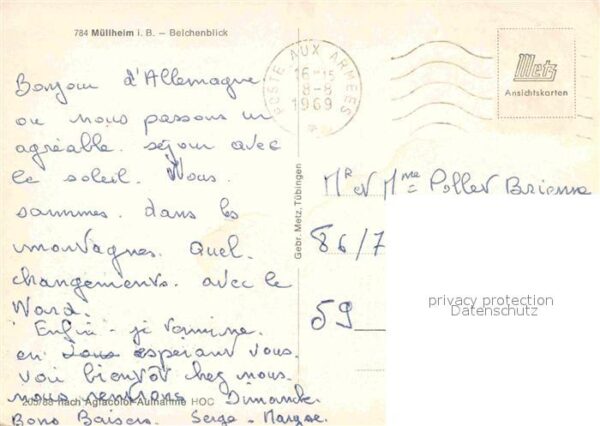 784 Müllheim i. B. – Belchenblick
Bonjour d'Allemagne
ou nous passons un
agréable. séjour avec
le soleil. Nous.
sommes. dans les
montagnes. Quel.
changements. avec le
Nord.
Enfin - je termine.
en vous esperant vous.
voir bientôt chez nous.
nous rentrons Dimanche.
Bons Baisers. Serge -
205/88 nach Agfacolor-Aufnahme HOC
Gebr. Metz, Tübingen
POSTE AUX ARMEES
16-15
8-8
1969
Metz
Ansichtskarten
Mr et Mme Pollet Brienne
86/7
59
privacy protection
Datenschutz